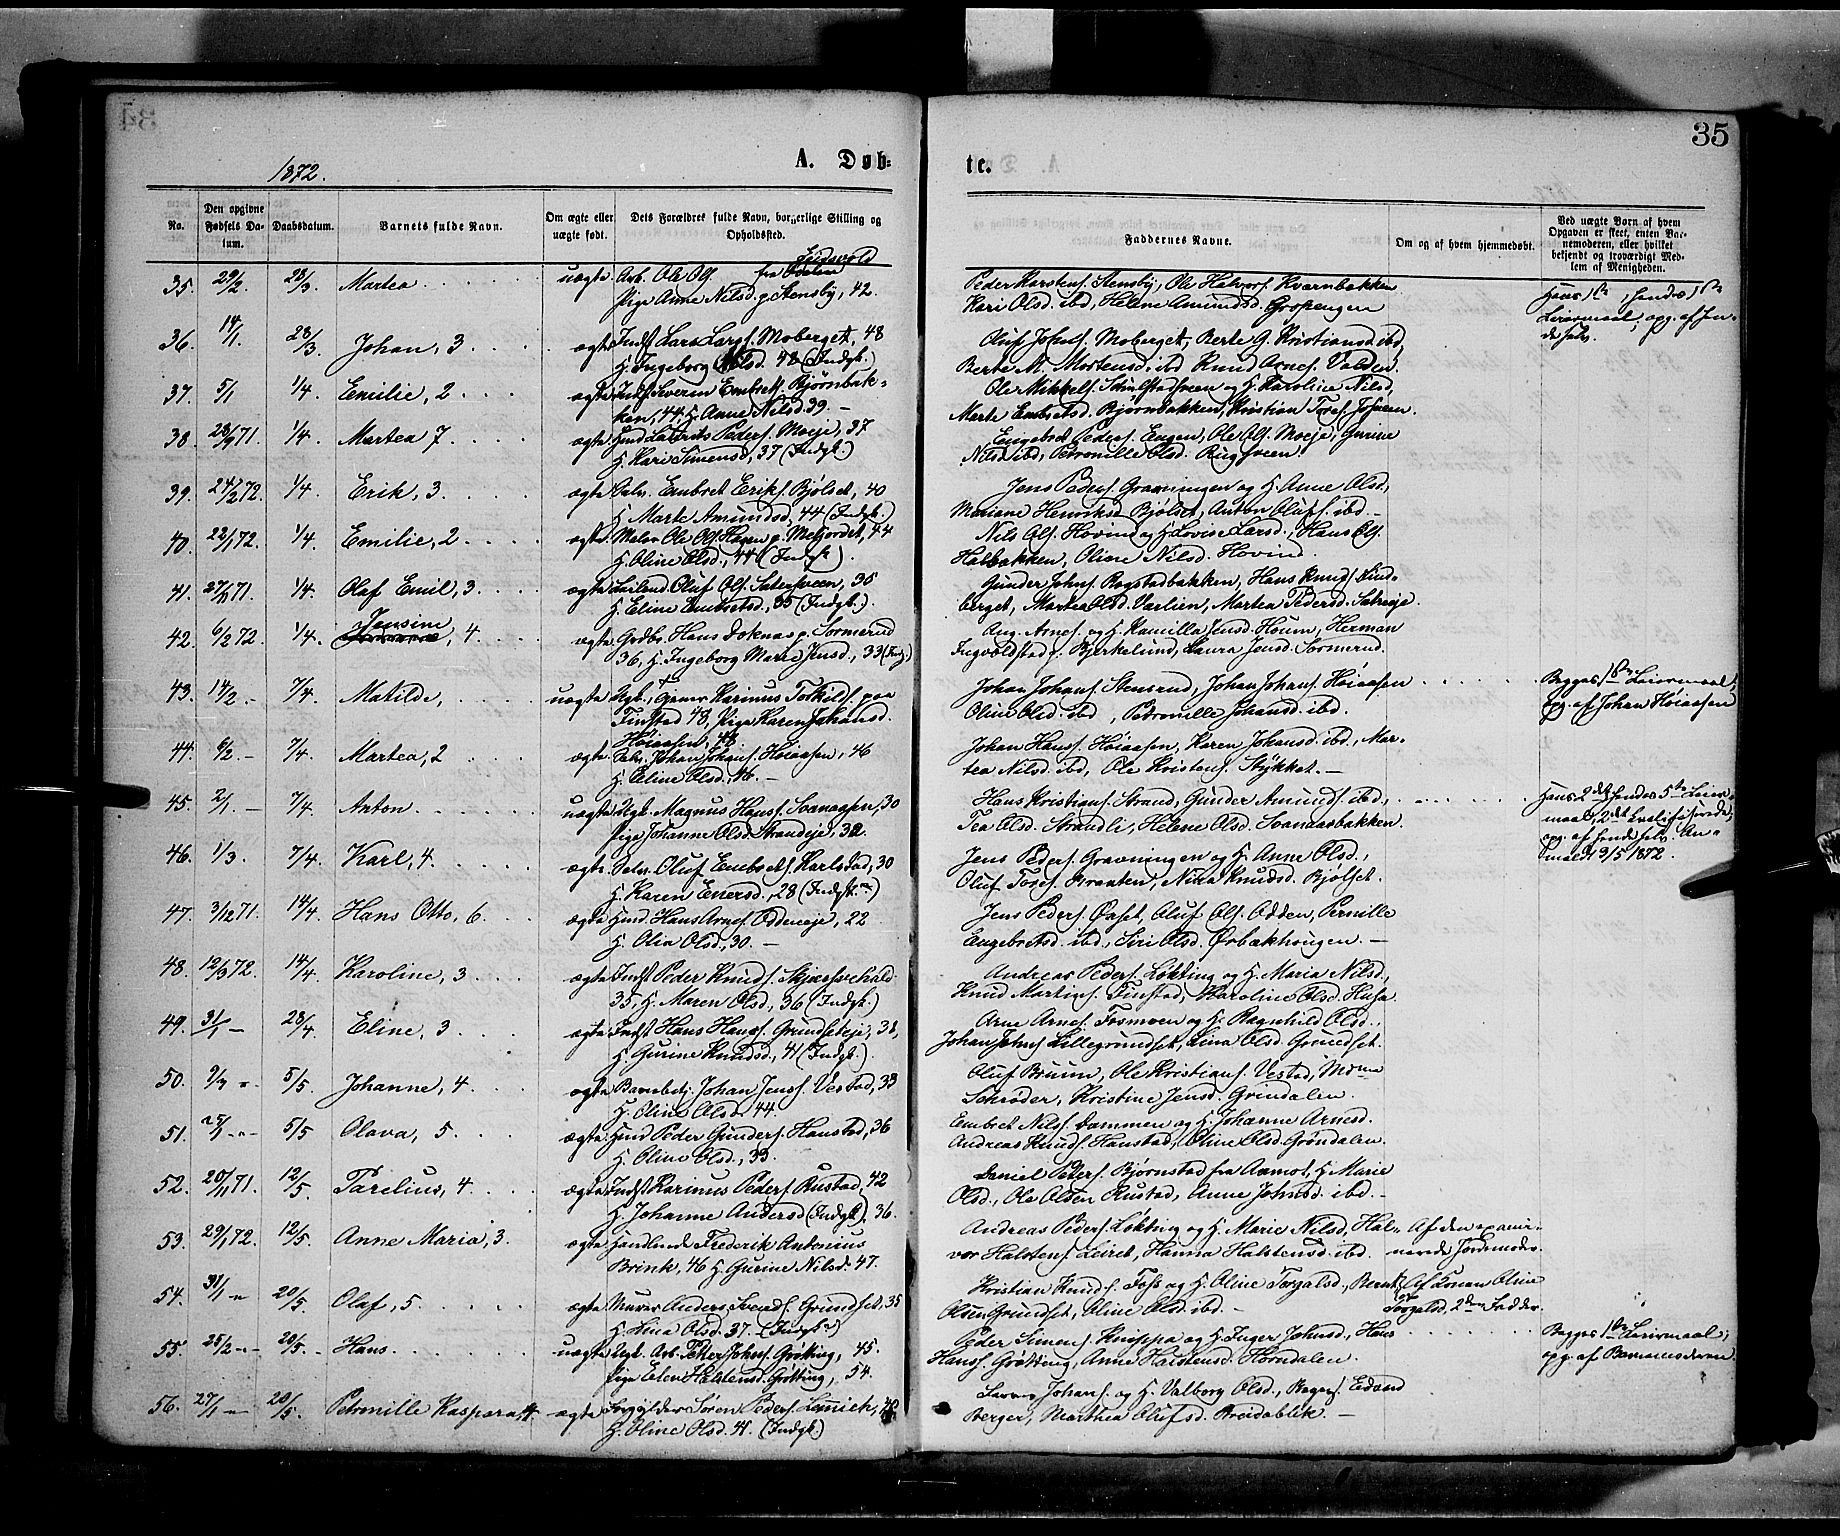 35
1872.
A. Døb-
te.
No.
Den opgivne Fødsels Da-
tum.
Daabsdatum.
Barnets fulde Navn.
Om ægte eller uægte født.
Dets Forældres fulde Navn, borgerlige Stilling og Opholdsted.
Faddernes Navne.
Om og af hvem hjemmedøbt.
Ved uægte Børn af hvem Opgaven er skeet, enten Bar-
nemoderen, eller hvilket bekjendt og troværdigt Med-
lem af Menigheden.
35. 29/2 28/3 Martea uægte Arb. Ole Ols. fra Eidsvold
Pige Anne Nilsd. p. Stensby, 42.
Peder Karstens. Stensby, Ole Halvors. Kvernbakken
Kari Olsd. ibd, Helene Amundsd. Gropengen
36. 14/1. 28/3 Johan, 3 ægte Indst Lars Larss. Moberget, 48
H. Ingeborg Olsd. 48 (Indgk.)
Oluf Johns. Moberget, Berte G. Kristiansd. ibd,
Berte M. Mortensd. ibd Knud Arnes. Volden.
37. 5/1 1/4. Emilie, 2 ægte Indst Iverin Embrets. Bjørnbak-
ken, 44 H. Anne Nilsd. 39. –
Ole Mikkels. Skulstadsveen og H. Karoline Nilsd,
Marte Embretsd. Bjørnbakken, Kristian Tores.
38. 28/9 71. 1/4. Martea 7 ægte Hmd Laurits Peders. Moeje, 37
H. Kari Simensd, 37 (Indgk.)
Engebret Peders. Engen, Ole Ols. Moeje, Gurine
Nilsd ibd, Petronille Olsd. Rugsveen.
39. 24/2 72. 1/4. Erik, 3. ægte Selv. Embret Eriks. Bjølset, 40
H. Marte Amundsd, 44 (Indgk.)
Jens Peders. Gravningen og H. Anne Olsd,
Mariane Henriksd. Bjølset, Anton Olufs. ibd. –
40. 22/1 72. 1/4. Emilie, 2 ægte Maler Ole Ols. Hagen p. Mefjordet, 44
H. Oline Olsd., 44 (Indgk)
Nils Ols. Hovind og H. Lovise Larsd, Hans Ols.
Halbakken, Oline Nilsd. Hovind.
41. 27/11 71. 1/4. Olaf Emil, 3. ægte Leilend. Oluf Ols. Sætersveen, 35
H. Eline Embretsd., 35 (Indgk.)
Gunder Johns. Rogstadbakken, Hans Knuds. Lind-
berget, Martea Olsd. Varlien, Martea Pedersd. Sætreeje.
42. 6/2 72. 1/4. Jensine, 4. ægte Grdbr. Hans Doknæs p. Sormerud
36, H. Ingeborg Marie Jensd., 33 (Indg.)
Aug. Arnes. og H. Kamilla Jensd. Houm, Herman
Ingvoldstad p. Bjerkelund, Laura Jensd. Sormerud.
43. 14/2. – 7/4. Matilde, uægte Ugk., Gjører Karinus Torkilds. paa
Finstad 48, Pige Karen Johansd.
Høiaasen, 48.
Johan Johans. Stensrud, Johan Johans. Høiaasen
Oline Olsd. ibd, Petronille Johansd. ibd.
Begges 1ste Leiermaal,
opg. af Johan Høiaasen
44. 6/2. – 7/4. Martea, 2 ægte Selv. Johan Johans. Høiaasen, 46
H. Eline Olsd., 46. –
Johan Hanss. Høiaasen, Karen Johansd. ibd., Mar-
tea Nilsd. ibd, Ole Kristens. Stykket. –
45. 2/1. – 7/4. Anton uægte Ugk. Magnus Hanss. Svenaasen, 30
Pige Johanne Olsd. Strandeje, 32.
Hans Kristians. Strand, Gunder Amunds. ibd.,
Tea Olsd. Strandli, Helene Olsd. Svenaasbakken.
46. 1/3. 7/4. Karl, 4. ægte Selv. Oluf Embrets. Karlstad, 30
H. Karen Einersd., 28 (Indgk.)
Jens Peders. Gravningen og H. Anne Olsd.,
Oluf Tores. Braaten, Nina Knudsd. Bjølset.
47. 3/12 71. 14/4. Hans Otto, 6. ægte Hmd. Hans Arnes. Oddeneje, 22
H. Olia Olsd., 30. –
Jens Peders. Øvset, Oluf Ols. Odden, Pernille
Engebretsd. ibd., Siri Olsd. Ørbækhougen. –
48. 12/3 72. 14/4. Karoline, 3 ægte Indst Peder Knuds. Skjærsvehald
35, H. Maren Olsd., 36 (Indgk.)
Andreas Peders. Løkting og H. Maria Nilsd,
Knud Martins. Finstad, Karoline Olsd. Husa
49. 31/1 – 28/4. Eline, 3 ægte Indst Hans Hans. Grundseteje, 38,
H. Gurine Knudsd., 41 (Indgk.).
Arne Arnes. Tosmoen og H. Ragnhild Olsd.,
Johan Johns. Lillegrundset, Lina Olsd. Grundset.
50. 9/3 – 5/5. Johanne, 4. ægte Johan Jenss. Vestad, 33
H. Oline Olsd. 44.
Oluf Bruun, Ole Kristians. Vestad,
Schrøder, Kristine Jensd. Grindalen.
51. 5/5 Olava, 5. ægte Hmd Peder Gunders. Hanstad, 36
H. Oline Olsd., 33.
Embret Nils. Dammen og H. Johanne Arnesd.
Andreas Knuds. Hanstad, Oline Olsd. Grøndalen.
52. 20/11 71. 12/5. Parelius, 4. ægte Indst Karinus Peders. Rustad, 42
H. Johanne Andersd (Indgk), 36.
Daniel Peders. Bjørnstad fra Aamot, H. Marie
Olsd., Ole Olsen Rustad, Anne Johnsd. ibd. –
53. 29/1 72. 12/5. Anne Maria, 3. ægte Handlende Frederik Antonius
Brink, 46 H. Gurine Nilsd. 47.
Andreas Peders. Løkting og H. Marie Nilsd, Hal-
vor Halstens. Leiret, Hanna Halstensd. ibd.
Af den exami-
nerede Jordemoder.
54. 31/1 – 20/5. Olaf, 5. ægte Murer Anders Svends. Grundset, 35
H. Lina Olsd. 37. (Indgk.)
Kristian Knuds. Foss og H. Oline Torgalsd., Bernt
Olsen Grundset, Oline Olsd. ibd. –
Af Konen Oline
Torgalsd, 2den Fadder.
55. 25/2 – 20/5. – Hans uægte Ugk. Arb. Petter Johns. Grøtting, 45.
Pige Elen Halstensd. Grøtting, 54.
Peder Simens. Knippa og H. Inger Johnsd., Hans
Hanss. Grøtting, Anne Halstensd. Horndalen.
Begges 1ste Leiermaal,
opg. af Barnemoderen.
56. 27/1 – 20/5. Petronille Kaspara, 4. ægte Forgylder Søren Peders. Lemick,
H. Oline Olsd. 41. (Indgk.)
Johans. og H. Valborg Olsd., Edvard
Berger, Marthea Olufsd. Breidablik. –
Hans 1ste, hendes 1ste
Leiermaal, opg. af hen-
de selv.
Hans 2det hendes 5te Leier-
maal, 2det
opg. af hende selv. An-
meldt 3/5 1872.